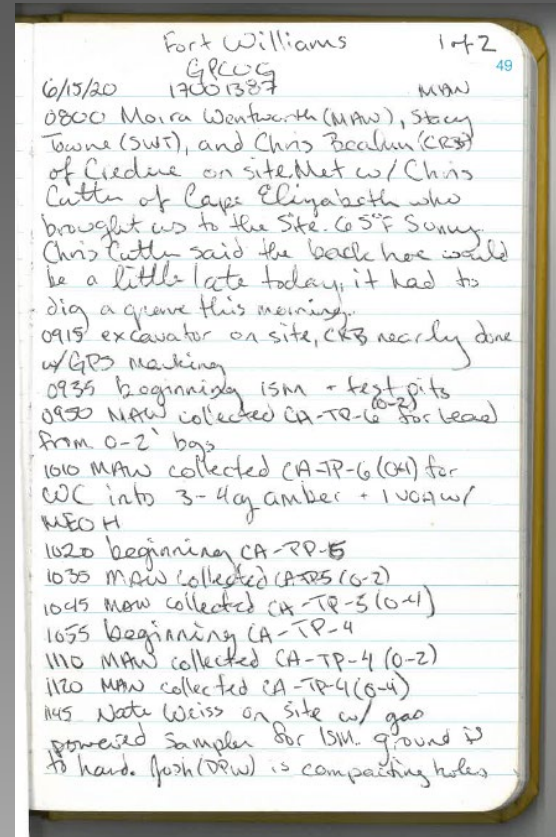 Fort Williams 1 of 2
GPCOG 49
6/15/20 17001387 MAW
0800 Moira Wentworth (MAW), Stacy
Towne (SWT), and Chris (CRB)
of Credere on site. Met w/ Chris
Cutter of Cape Elizabeth who
brought us to the Site. 65°F Sunny.
Chris Cutter said the back hoe would
be a little late today, it had to
dig a grave this morning.
0915 excavator on site, CRB nearly done
w/ GPS marking
0935 beginning ISM + test pits
0950 MAW collected CA-TP-6 (0-2) for lead
from 0-2' bgs
1010 MAW collected CA-TP-6 (0-4) for
WC into 3-4oz amber + 1 VOA w/
MEOH
1020 beginning CA-TP-5
1035 MAW collected CA-TP5 (0-2)
1045 MAW collected CA-TP-5 (0-4)
1055 beginning CA-TP-4
1110 MAW collected CA-TP-4 (0-2)
1120 MAW collected CA-TP-4 (0-4)
1145 Nate Weiss on site w/ gas
powered sampler for ISM. ground is
to hard. Josh (DPW) is compacting holes